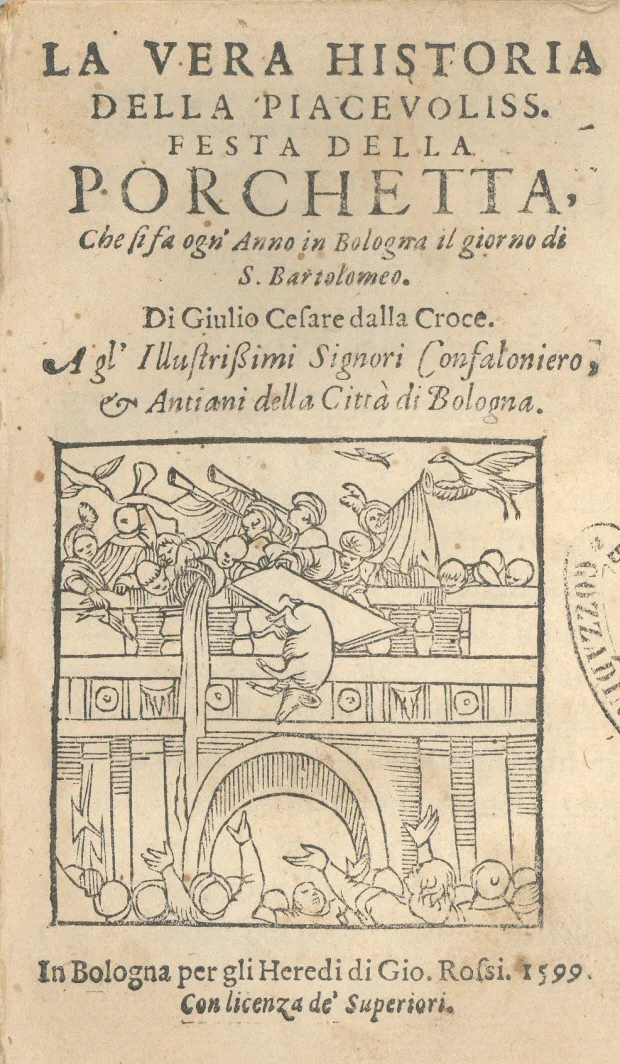 LA VERA HISTORIA
DELLA PIACEVOLISS.
FESTA DELLA
PORCHETTA,
Che ſi fa ogn' Anno in Bologna il giorno di
S. Bartolomeo.
Di Giulio Ceſare dalla Croce.
A gl' Illuſtrißimi Signori Confaloniero,
& Antiani della Città di Bologna.
In Bologna per gli Heredi di Gio. Roſsi. 1599.
Con licenza de' Superiori.